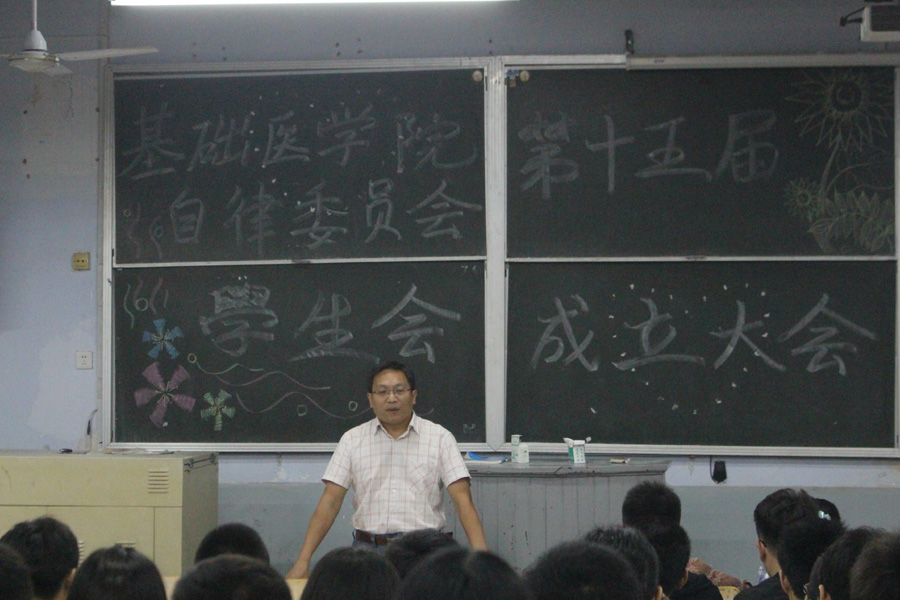 基础医学院
自律委员会
第十五届
學生会
成立大会